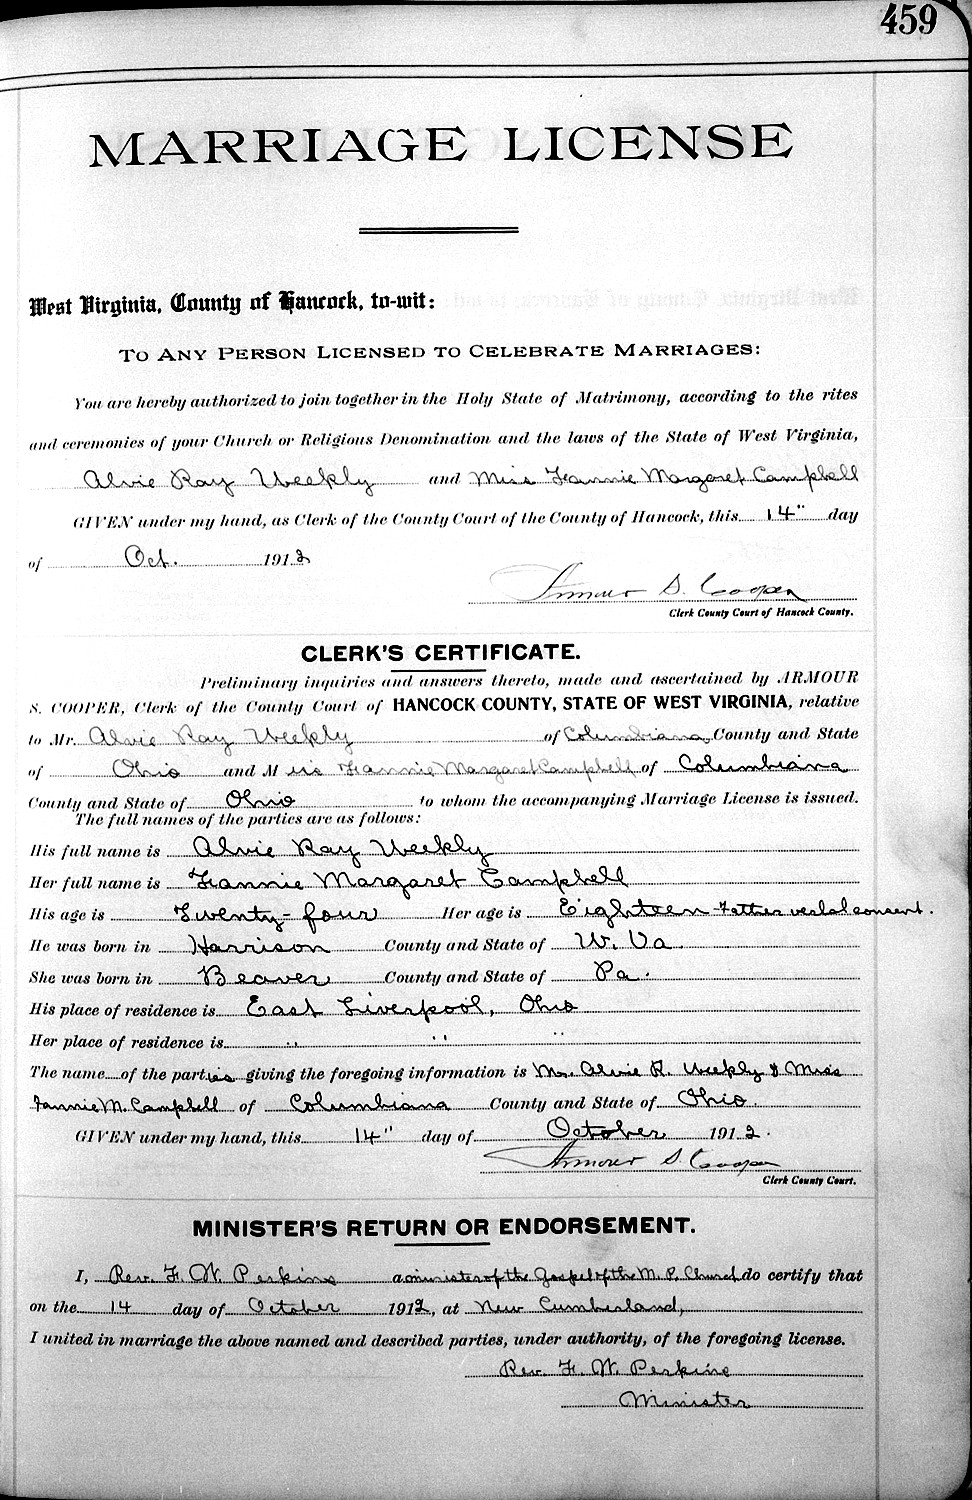 459
MARRIAGE LICENSE
West Virginia, County of Hancock, to-wit:
TO ANY PERSON LICENSED TO CELEBRATE MARRIAGES:
You are hereby authorized to join together in the Holy State of Matrimony, according to the rites
and ceremonies of your Church or Religious Denomination and the laws of the State of West Virginia,
Alvie Ray Weekly and Miss Fannie Margaret Campbell
GIVEN under my hand, as Clerk of the County Court of the County of Hancock, this 14" day
of Oct. 1912
Armour S. Cooper
Clerk County Court of Hancock County.
CLERK'S CERTIFICATE.
Preliminary inquiries and answers thereto, made and ascertained by ARMOUR
S. COOPER, Clerk of the County Court of HANCOCK COUNTY, STATE OF WEST VIRGINIA, relative
to Mr. Alvie Ray Weekly of Columbiana, County and State
of Ohio and Miss Fannie Margaret Campbell of Columbiana
County and State of Ohio to whom the accompanying Marriage License is issued.
The full names of the parties are as follows:
His full name is Alvie Ray Weekly
Her full name is Fannie Margaret Campbell
His age is Twenty-four Her age is Eighteen Father verbal consent.
He was born in Harrison County and State of W. Va.
She was born in Beaver County and State of Pa.
His place of residence is East Liverpool, Ohio
Her place of residence is " " "
The name of the parties giving the foregoing information is Mr. Alvie R. Weekly & Miss
Fannie M. Campbell of Columbiana County and State of Ohio.
GIVEN under my hand, this 14" day of October 1912.
Armour S. Cooper
Clerk County Court.
MINISTER'S RETURN OR ENDORSEMENT.
I, Rev. F. W. Perkins a minister of the Gospel of the M. P. Church do certify that
on the 14 day of October 1912, at New Cumberland,
I united in marriage the above named and described parties, under authority, of the foregoing license.
Rev. F. W. Perkins
Minister